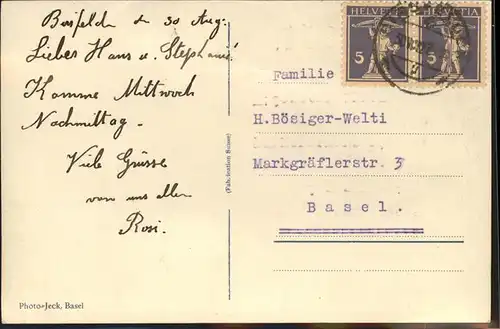 Birsfelden d 30 Aug.
Lieber Hans u. Stephanie!
Komme Mittwoch
Nachmittag.
Viele Grüsse
von uns allen
Rosi.
Photo-Jeck, Basel
(Fabrication Suisse)
HELVETIA HELVETIA
5 5
Familie
H.Bösiger-Welti
Markgräflerstr. 3
Basel.